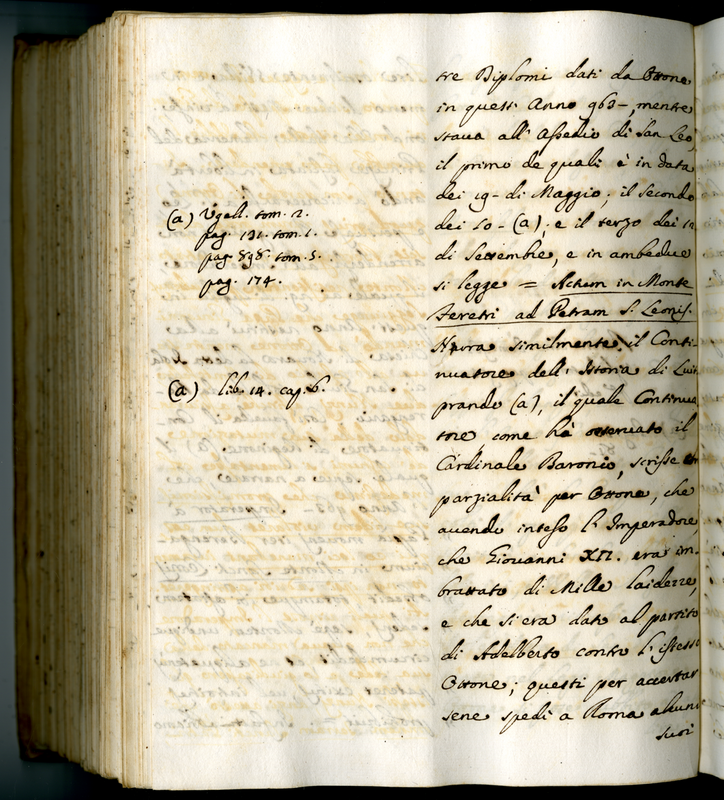 tre Diplomi dati da Ottone
in quest' Anno 963-, mentre
staua all' Assedio di San Leo,
il primo de quali è in data
dei 19- di Maggio; il Secondo
dei 10- (a); e il terzo dei 12
di Settembre, e in ambedue
si legge = Actum in Monte
Feretri ad Petram S. Leonis.
Narra similmente il Conti-
nuatore dell' Istoria di Luit
prando (a), il quale Continua
tore, come hà osseruato il
Cardinale Baronio, scrisse
parzialità per Ottone, che
auendo inteso l' Imperadore,
che Giouanni XII. era im-
brattato di Mille laidezze,
e che si era dato al partito
di Adelberto contro l' istesso
Ottone; questi per accertar
sene spedì a Roma alcuni
suoi
(a) Vgell. tom. 2.
pag. 131. tom. 1.
pag. 898. tom. 5.
pag. 174.
(a) lib. 14. cap. 6.